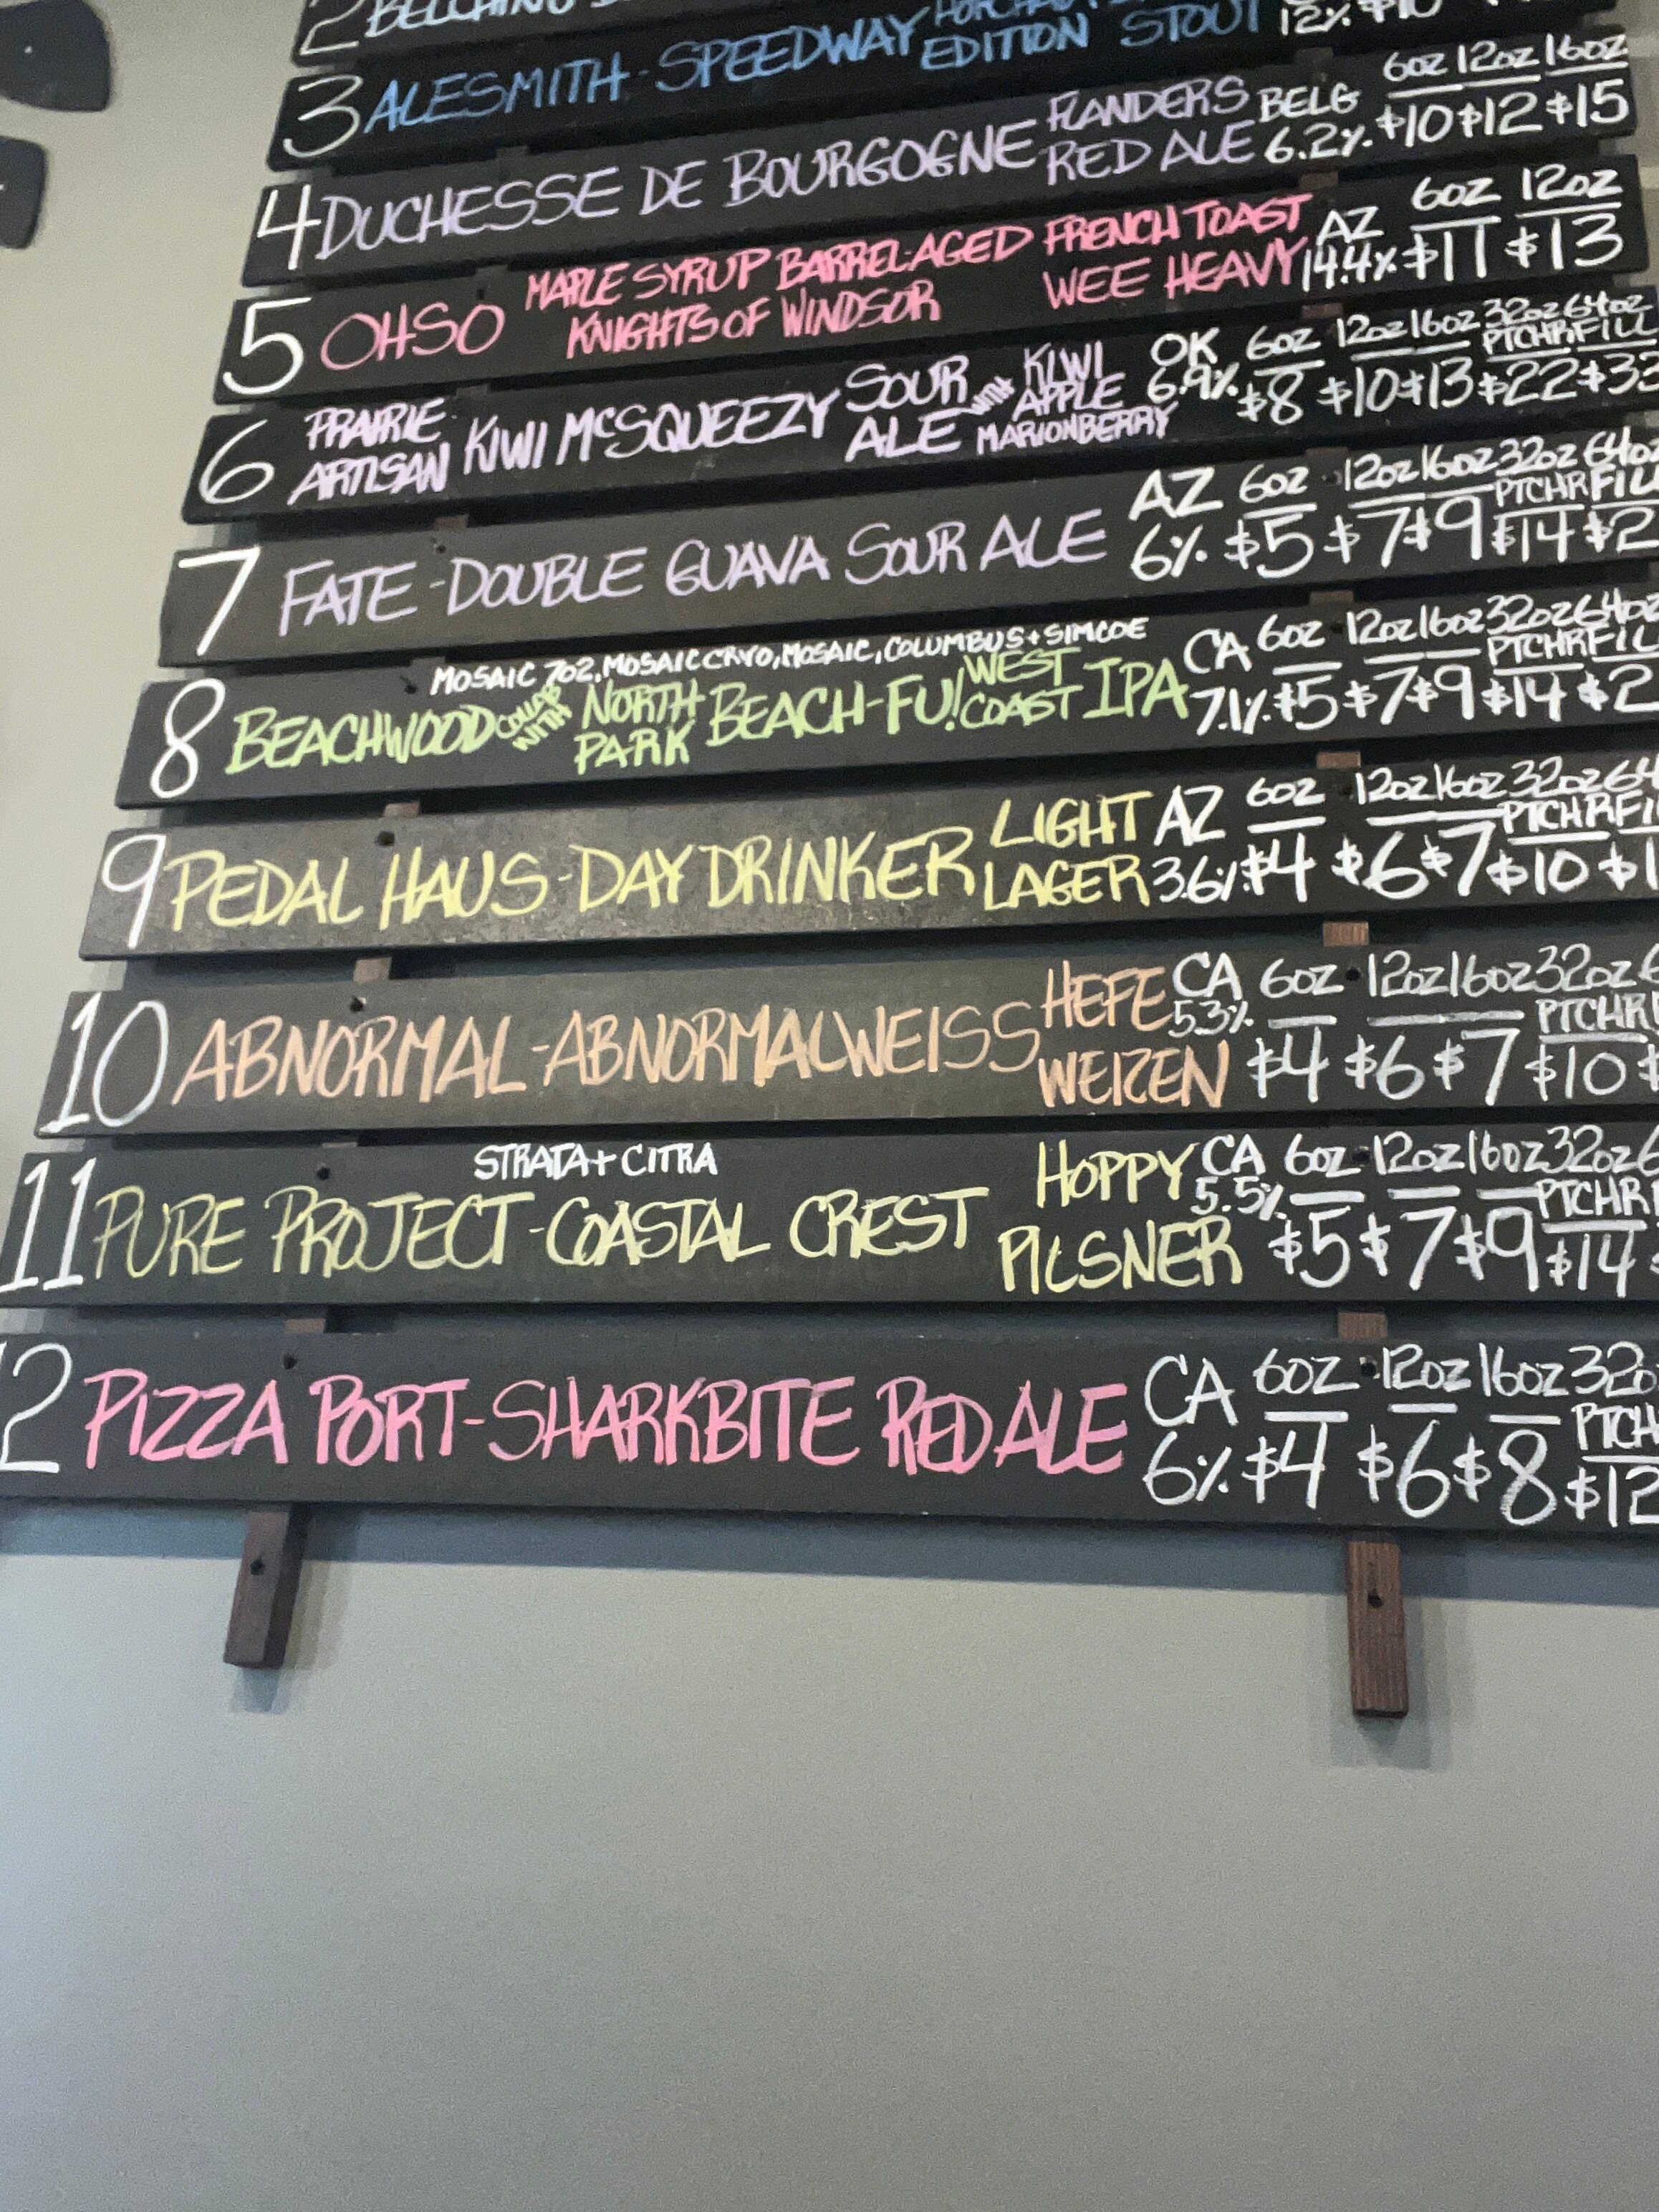 2
3 ALESMITH - SPEEDWAY EDITION STOUT 12% $10
4 DUCHESSE DE BOURGOGNE FLANDERS RED ALE BELG 6.2% 6OZ $10 12OZ $12 16OZ $15
5 OHSO MAPLE SYRUP BARREL-AGED KNIGHTS OF WINDSOR FRENCH TOAST WEE HEAVY AZ 14.4% 6OZ $11 12OZ $13
6 PRAIRIE ARTISAN KIWI MCSQUEEZY SOUR ALE WITH KIWI APPLE MARIONBERRY OK 6.9% 6OZ $8 12OZ $10 16OZ $13 32OZ PTCHR $22 64OZ FILL $33
7 FATE - DOUBLE GUAVA SOUR ALE AZ 6% 6OZ $5 12OZ $7 16OZ $9 32OZ PTCHR $14
MOSAIC 702, MOSAIC CRYO, MOSAIC, COLUMBUS + SIMCOE
8 BEACHWOOD COLLAB WITH NORTH PARK BEACH-FU! WEST COAST IPA CA 7.1% 6OZ $5 12OZ $7 16OZ $9 32OZ PTCHR $14
9 PEDAL HAUS - DAY DRINKER LIGHT LAGER AZ 3.6% 6OZ $4 12OZ $6 16OZ $7 32OZ PTCHR $10
10 ABNORMAL - ABNORMALWEISS HEFE WEIZEN CA 5.3% 6OZ $4 12OZ $6 16OZ $7 32OZ PTCHR $10
STRATA + CITRA
11 PURE PROJECT - COASTAL CREST HOPPY PILSNER CA 5.5% 6OZ $5 12OZ $7 16OZ $9 32OZ PTCHR $14
2 PIZZA PORT - SHARKBITE RED ALE CA 6% 6OZ $4 12OZ $6 16OZ $8 $12